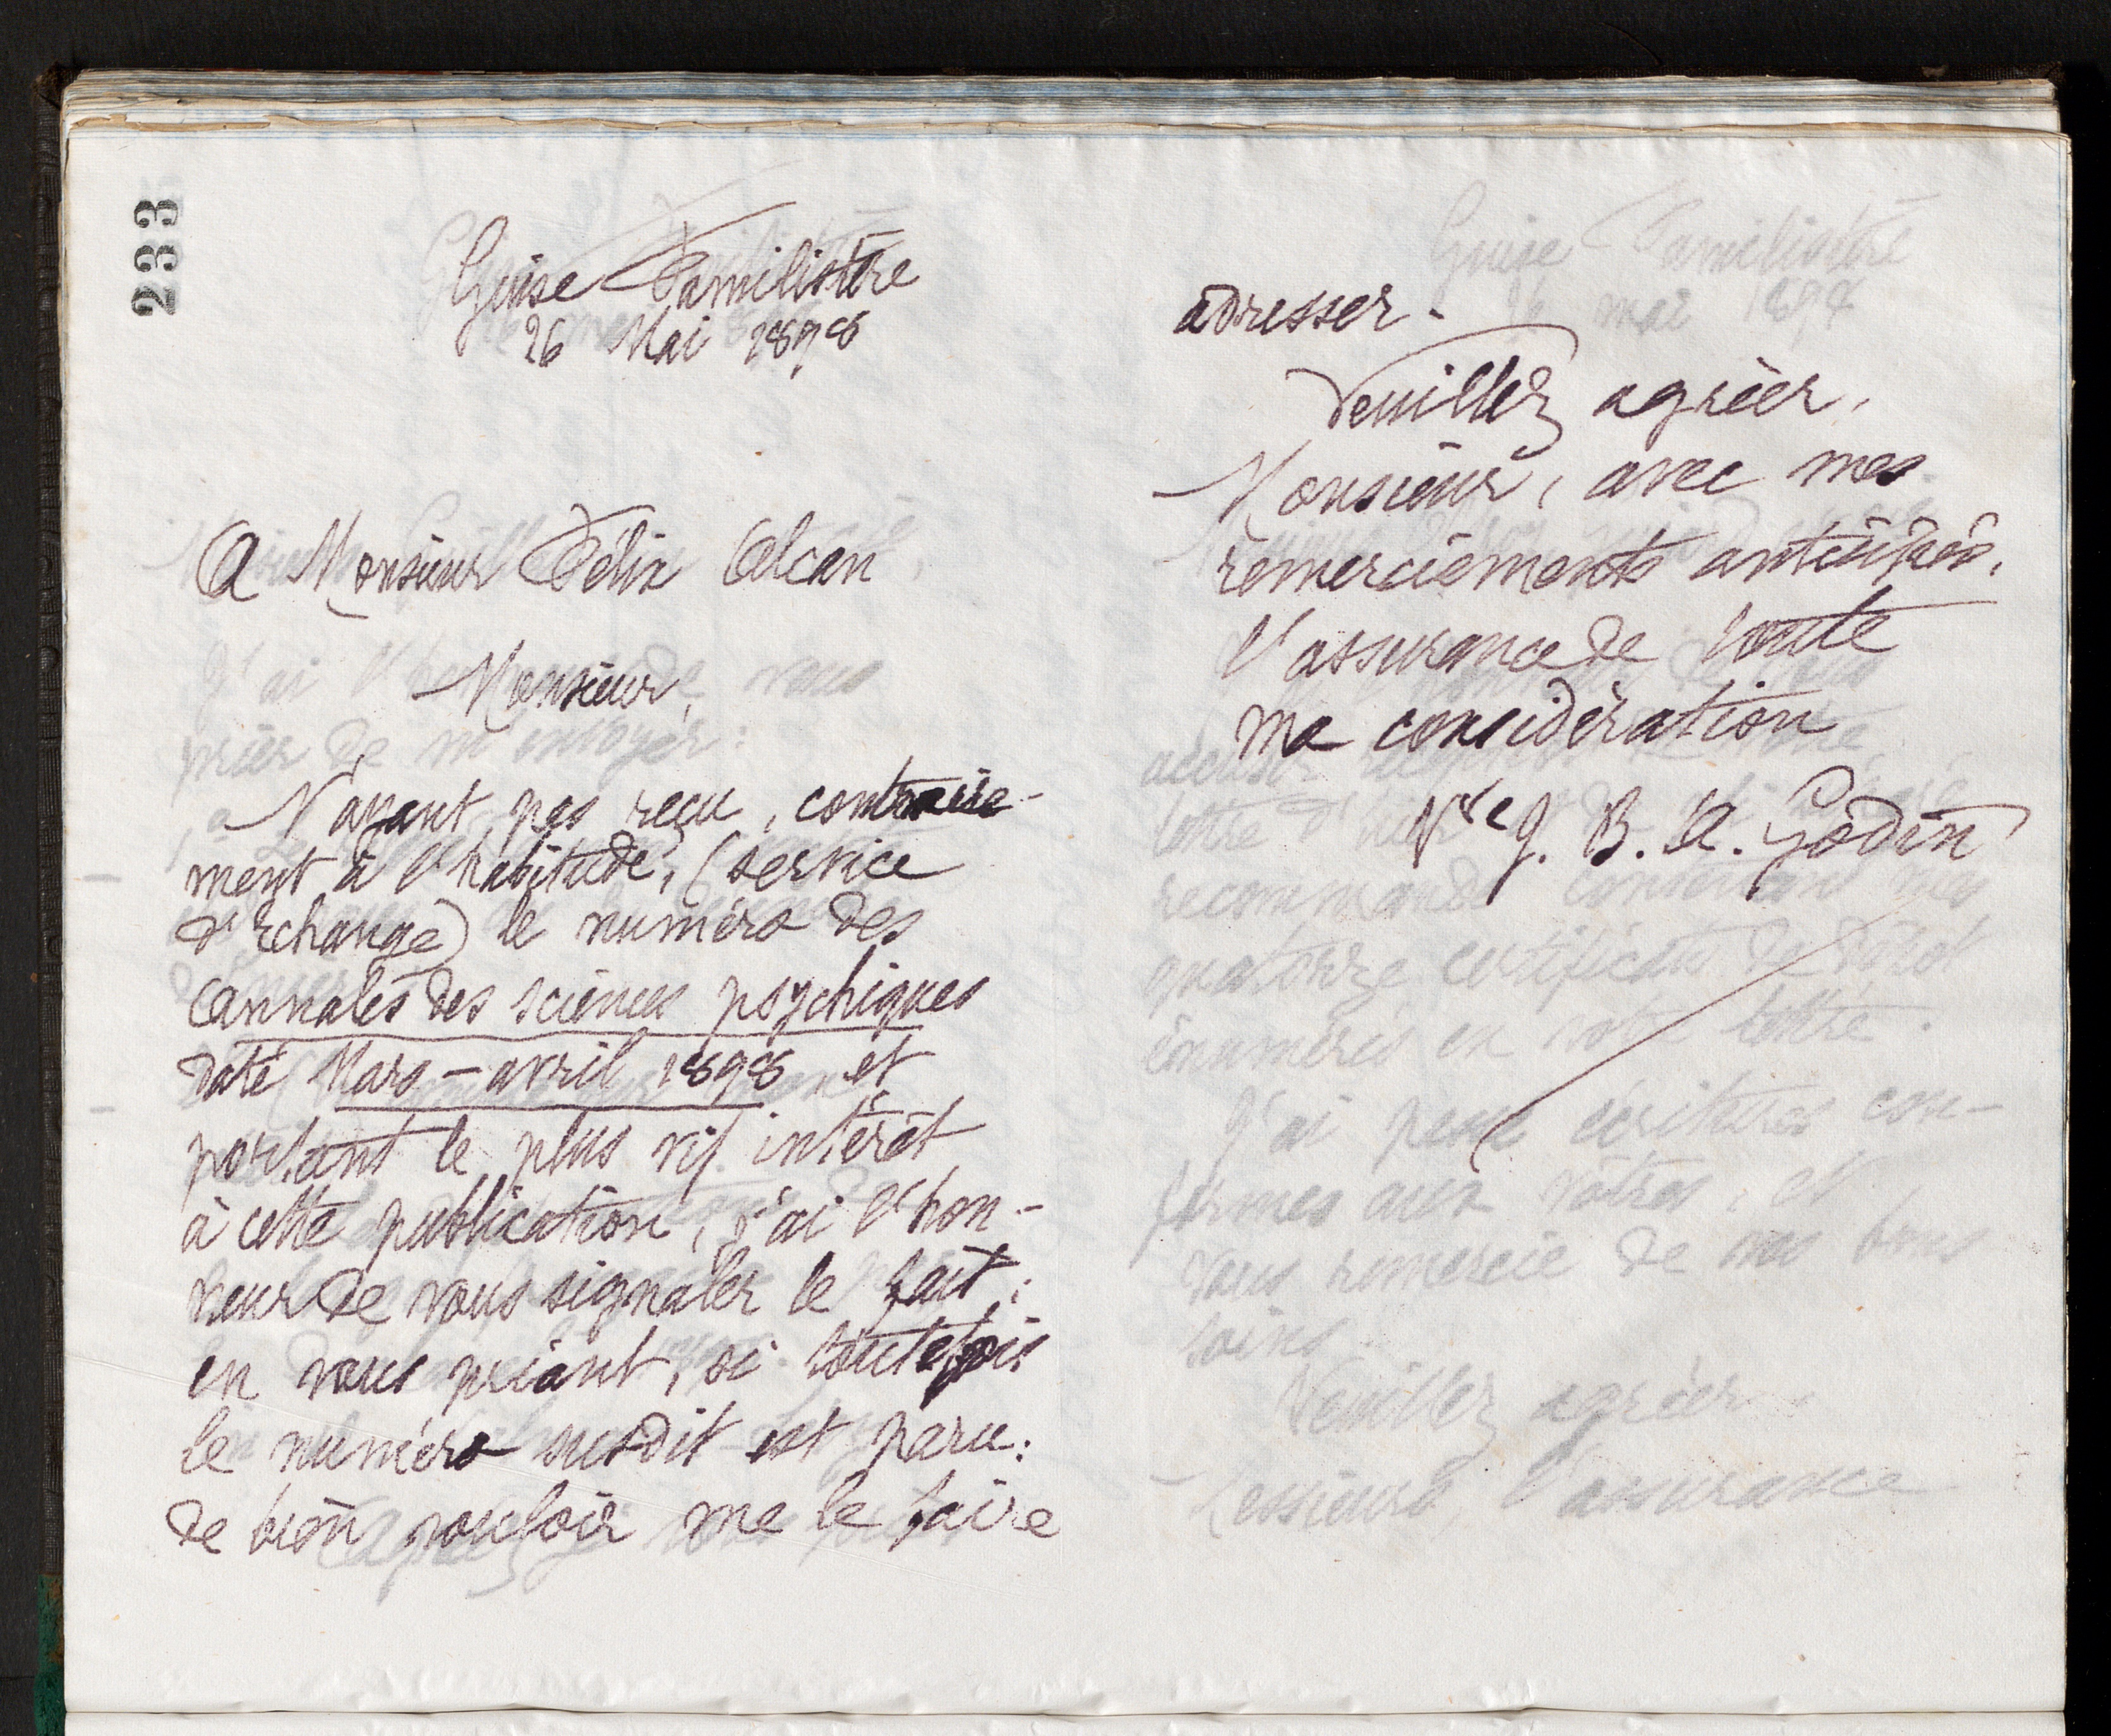 233
Guise Familistère
26 Mai 1898
A Monsieur Félix Alcan
Monsieur,
N'ayant pas reçu, contraire-
ment à l'habitude, (service
d'Echange) le numéro des
Annales des sciences psychiques
daté Mars-avril 1898, et
portant le plus vif intérêt
à cette publication, j'ai l'hon-
neur de vous signaler le fait;
en vous priant, si toutefois
le numéro susdit est paru:
de bien vouloir me le faire
adresser.
Veuillez agréer,
Monsieur, avec mes
remerciements anticipés,
l'assurance de toute
ma considération
Vve J. B. A. Godin